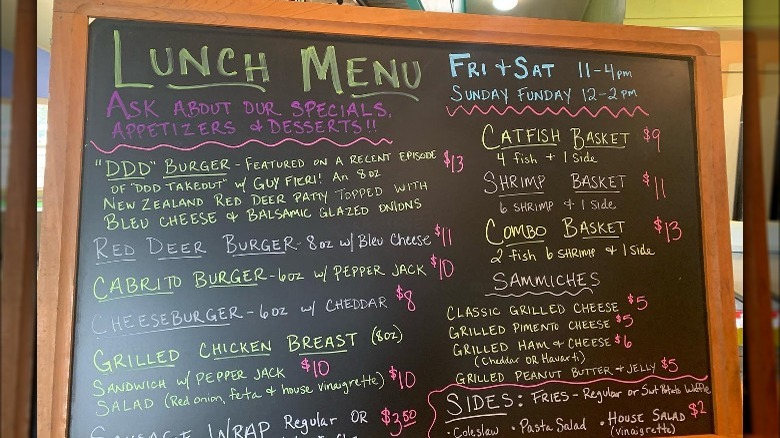 LUNCH MENU
ASK ABOUT OUR SPECIALS,
APPETIZERS & DESSERTS!!
"DDD" BURGER - FEATURED ON A RECENT EPISODE $13
OF "DDD TAKEOUT" W/ GUY FIERI! AN 8OZ
NEW ZEALAND RED DEER PATTY TOPPED WITH
BLEU CHEESE & BALSAMIC GLAZED ONIONS
RED DEER BURGER - 8oz w/ Bleu Cheese $11
CABRITO BURGER - 6oz w/ PEPPER JACK $10
CHEESEBURGER - 6oz w/ CHEDDAR $8
GRILLED CHICKEN BREAST (8oz)
SANDWICH w/ PEPPER JACK $10
SALAD (Red onion, feta & house vinaigrette) $10
SAUSAGE WRAP Regular OR $3.50
FRI + SAT 11-4pm
SUNDAY FUNDAY 12-2pm
CATFISH BASKET $9
4 fish + 1 side
SHRIMP BASKET $11
6 shrimp & 1 side
COMBO BASKET $13
2 fish 6 shrimp & 1 side
SAMMICHES
CLASSIC GRILLED CHEESE $5
GRILLED PIMENTO CHEESE $5
GRILLED HAM & CHEESE $6
(Cheddar or Havarti)
GRILLED PEANUT BUTTER & JELLY $5
SIDES: FRIES - Regular or Swt Potato Waffle
• Coleslaw • Pasta Salad • HOUSE SALAD $2
(vinaigrette)